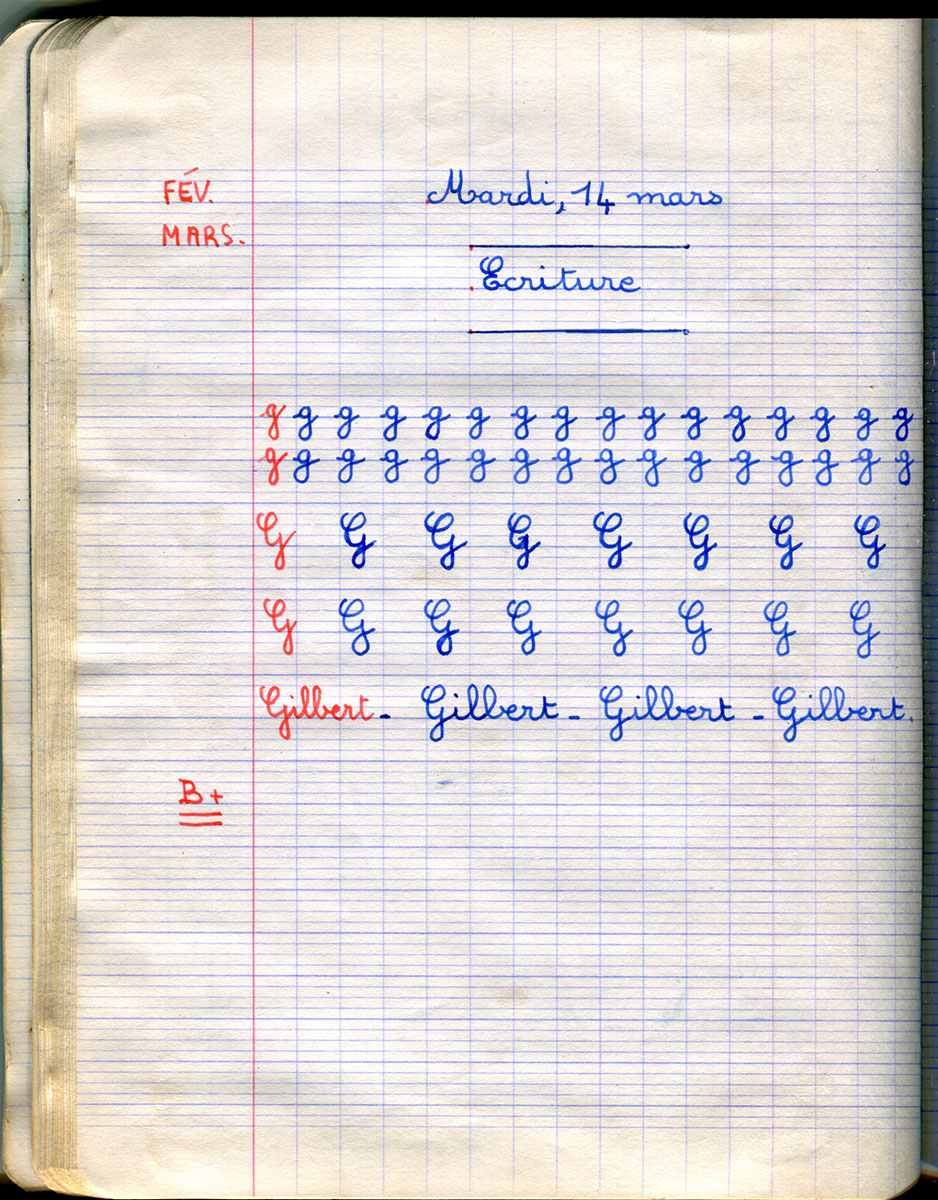 FÉV.
Mardi, 14 mars
MARS.
Ecriture
g g g g g g g g g g g g g g g g
g g g g g g g g g g g g g g g g
G G G G G G G G
G G G G G G G G
Gilbert - Gilbert - Gilbert - Gilbert.
B+